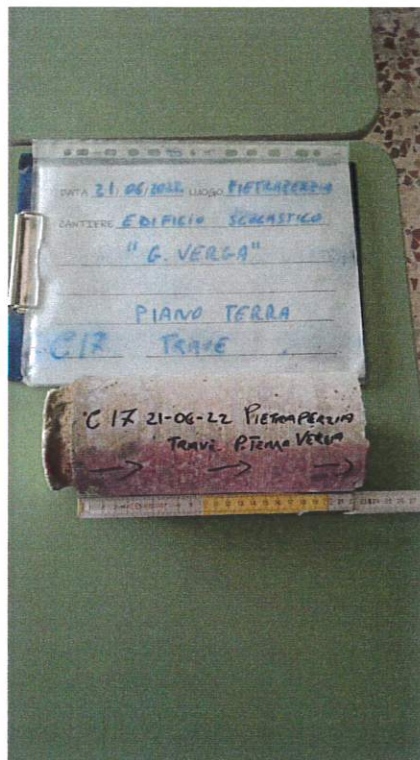 DATA 21/06/2022 LUOGO PIETRAPERZIA
CANTIERE EDIFICIO SCOLASTICO
"G. VERGA"
PIANO TERRA
C17 TRAVE
C17 21-06-22 PIETRAPERZIA
TRAVE P.TERRA VERGA